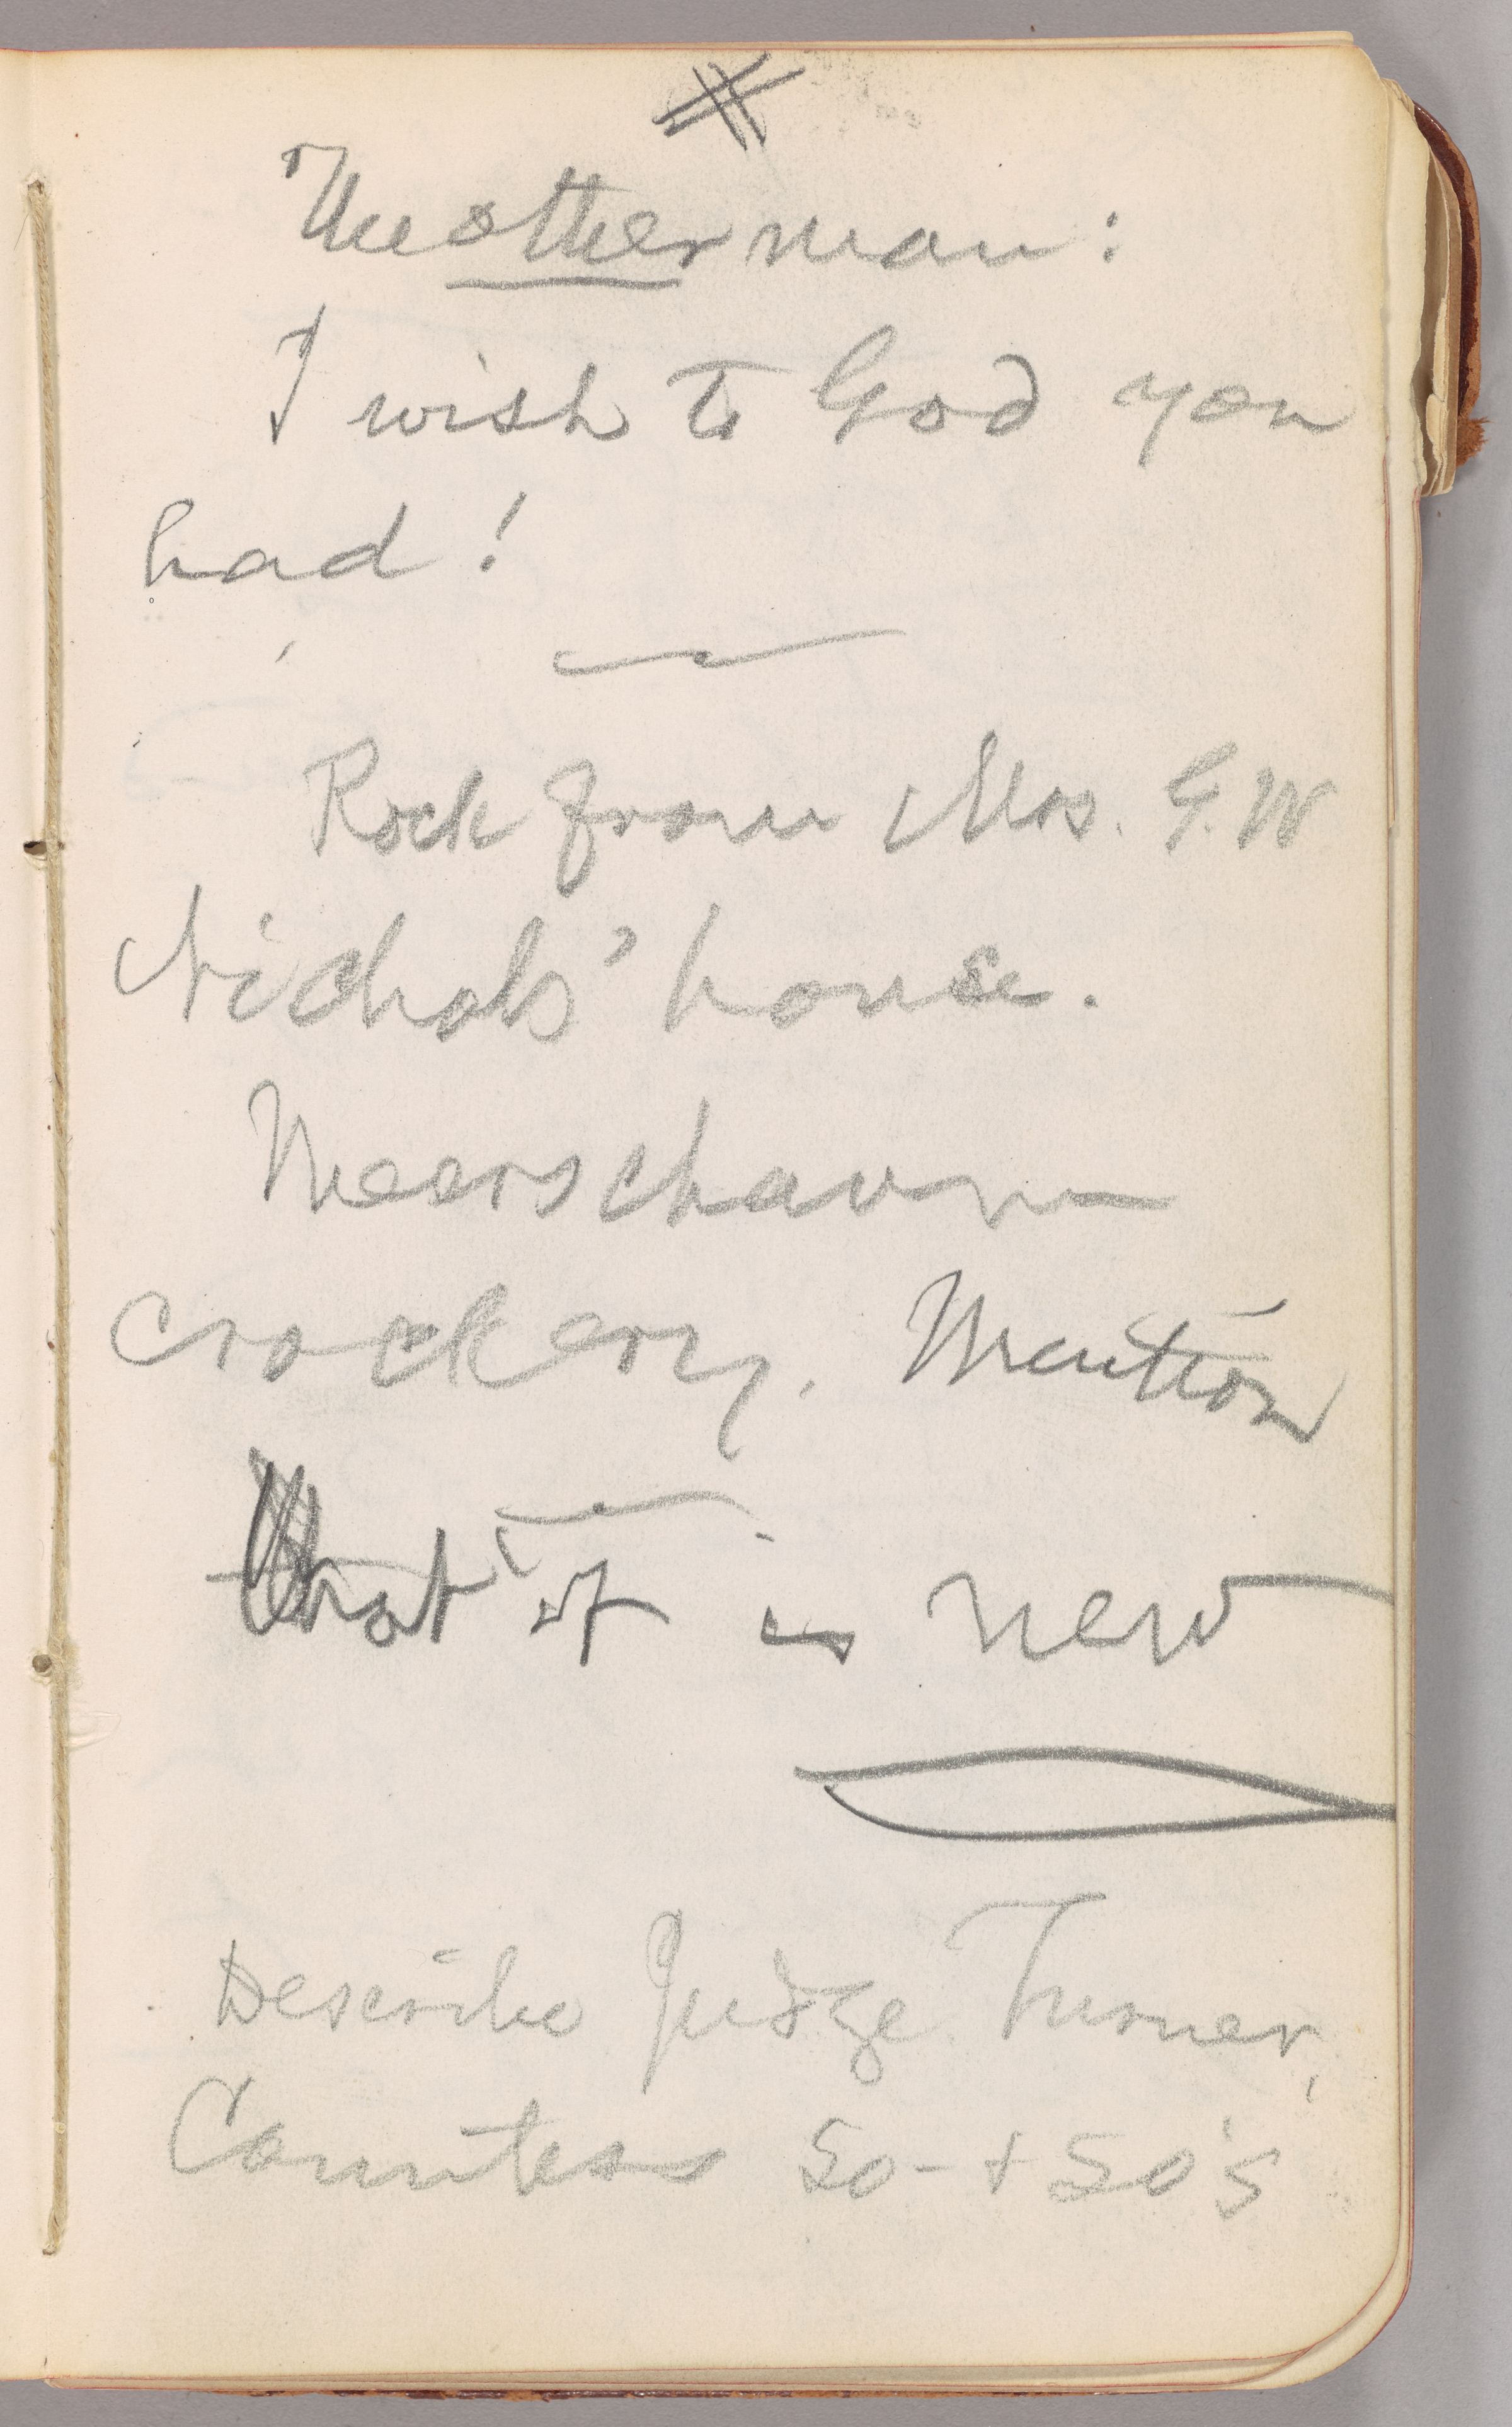 #
The other man:
I wish to God you
had!
Rock from Mrs. G. W
Nichols' house.
Meerschaum
crockery. Mention
that it is new
Describe Judge Turner,
Countess So-+ So's